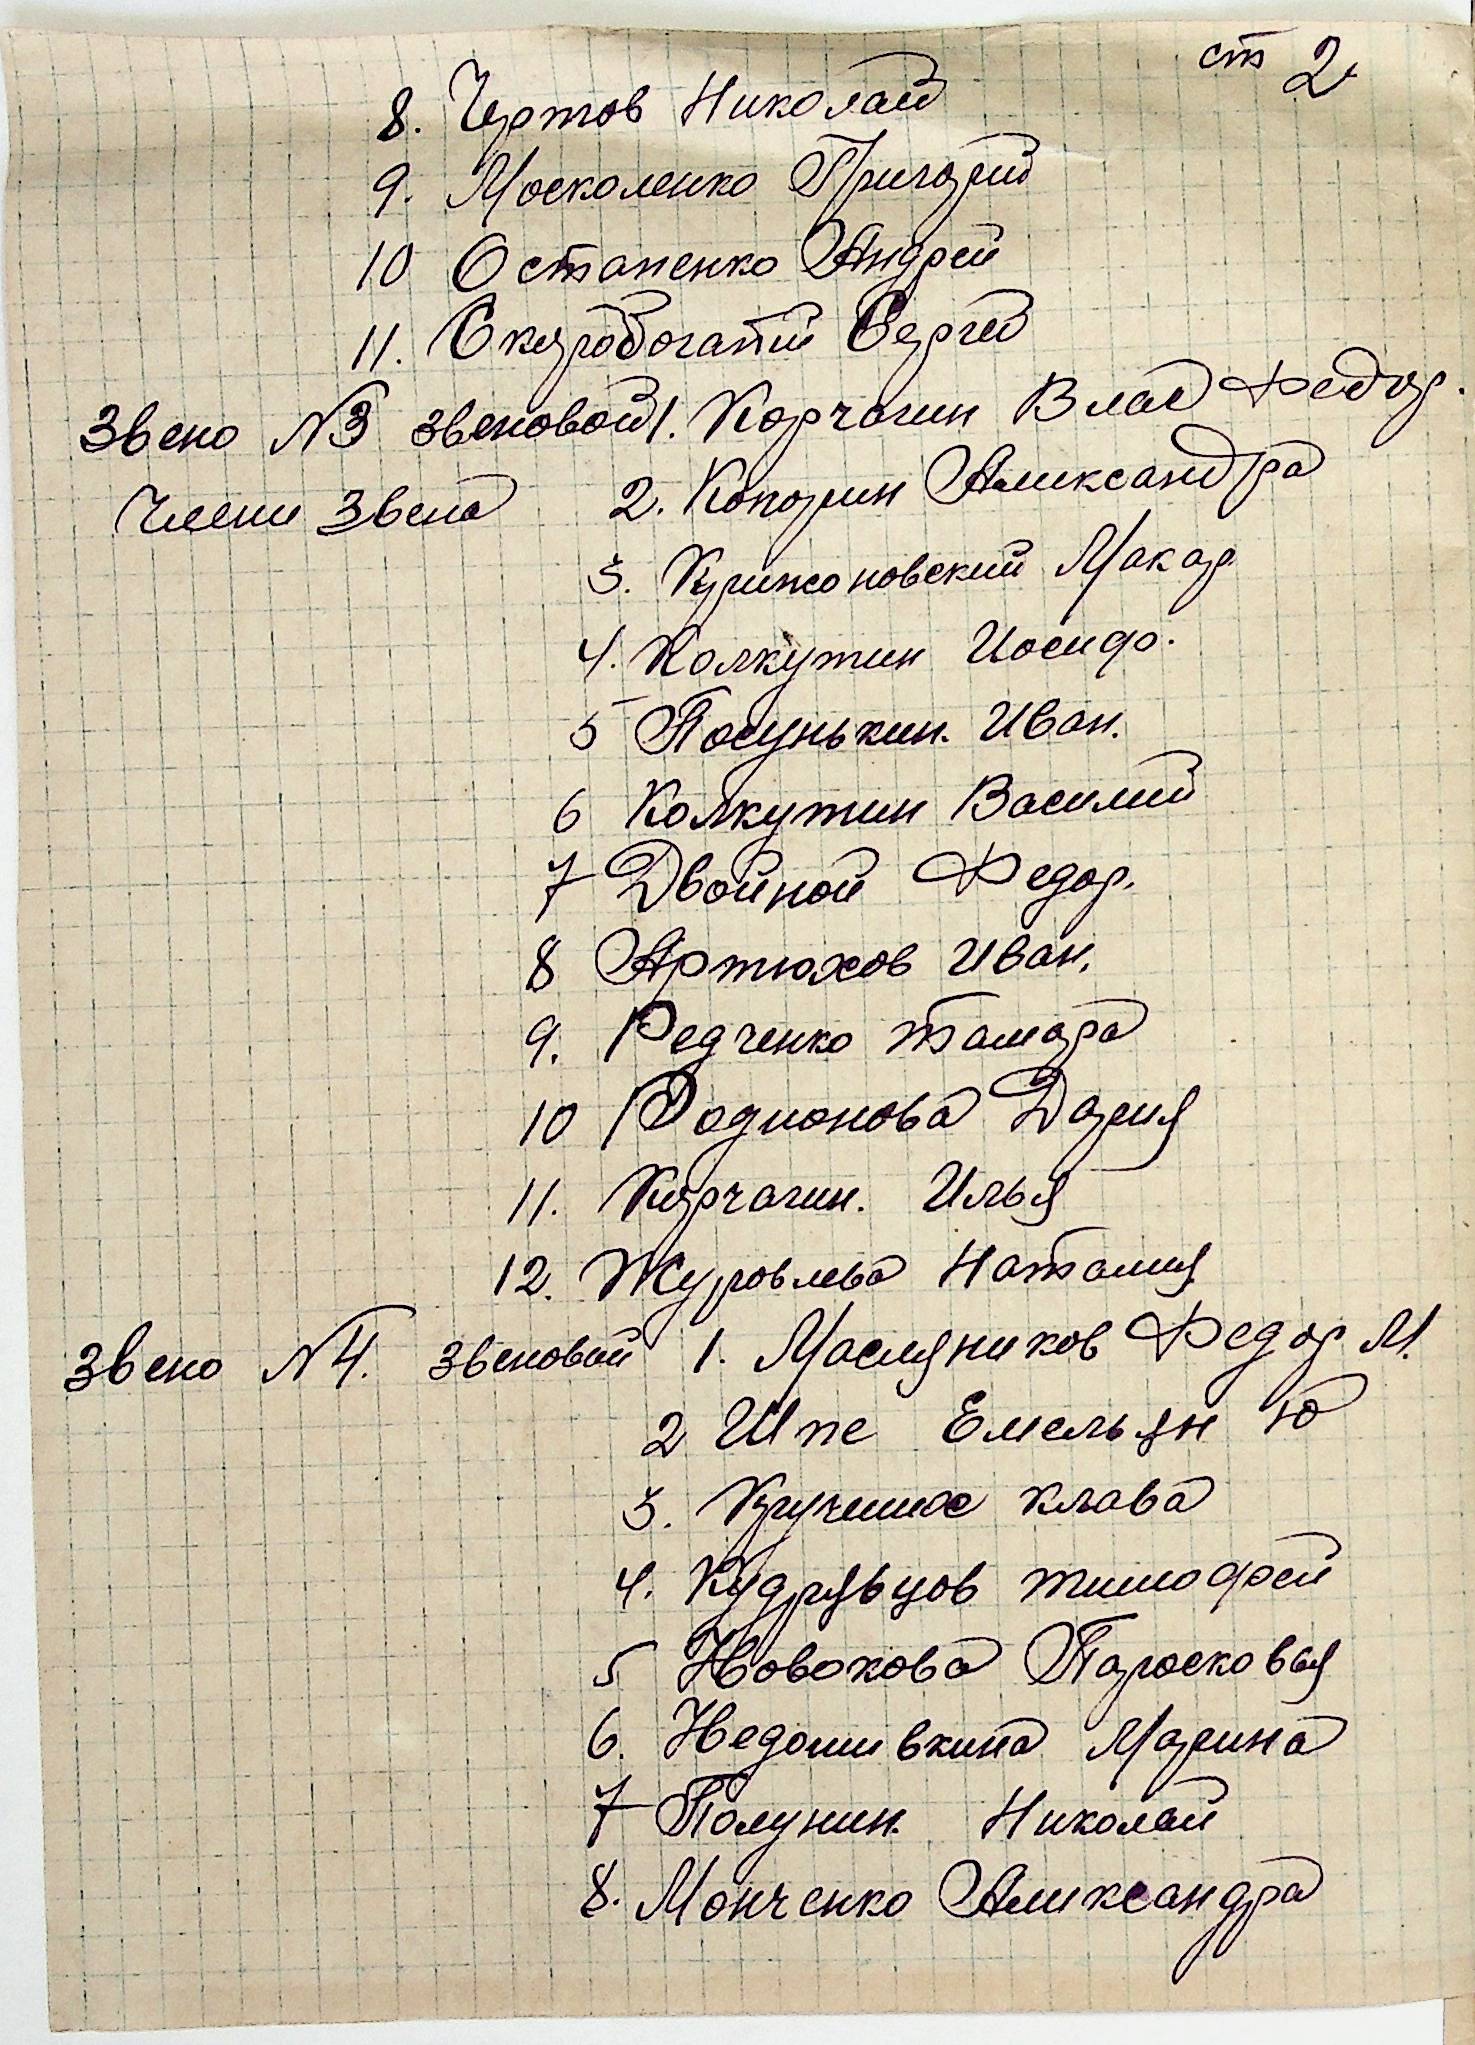 ст 2
8. Чертов Николай
9. Москаленко Григорий
10 Остапенко Андрей
11. Скоробогатий Сергей
Звено №3 звеновой 1. Корчагин Влас Федор.
Члени Звена 2. Копорин Александра
3. Крижановский Макар
4. Колкутин Иосиф.
5 Посунькин. Иван.
6 Колкутин Василий
7 Двойной Федор.
8 Артюхов Иван.
9. Редченко Тамара
10 Родионова Дария
11. Корчагин. Илья
12. Журовлева Наталия
Звено №4. звеновой 1. Масляников Федор М.
2 Шпе Емельян Ю
3. Кручинихе клава
4. Кудрявцов тимофей
5 Новокова Парасковья
6. Недошивкина Марина
7 Полунин. Николай
8. Монченко Александра